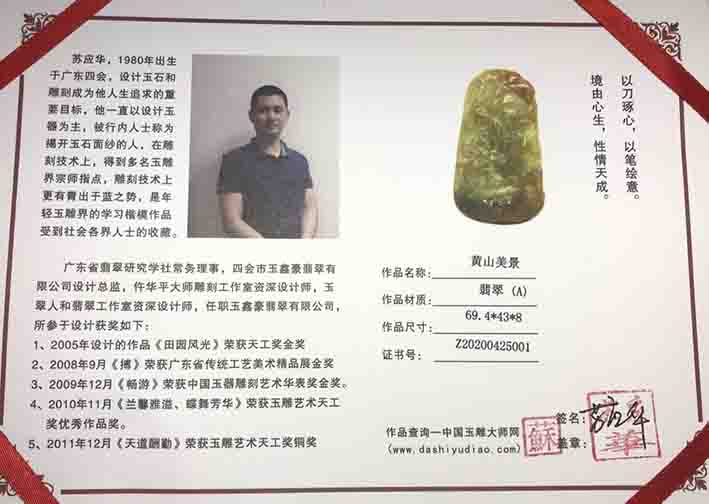 苏应华，1980年出生
于广东四会，设计玉石和
雕刻成为他人生追求的重
要目标，他一直以设计玉
器为主，被行内人士称为
揭开玉石面纱的人，在雕
刻技术上，得到多名玉雕
界宗师指点，雕刻技术上
更有青出于蓝之势，是年
轻玉雕界的学习楷模作品
受到社会各界人士的收藏。
广东省翡翠研究学社常务理事，四会市玉鑫豪翡翠有
限公司设计总监，仵华平大师雕刻工作室资深设计师，玉
翠人和翡翠工作室资深设计师，任职玉鑫豪翡翠有限公司，
所参于设计获奖如下：
1、2005年设计的作品《田园风光》荣获天工奖金奖
2、2008年9月《搏》荣获广东省传统工艺美术精品展金奖
3、2009年12月《畅游》荣获中国玉器雕刻艺术华表奖金奖。
4、2010年11月《兰馨雅溢、蝶舞芳华》荣获玉雕艺术天工
奖优秀作品奖。
5、2011年12月《天道酬勤》荣获玉雕艺术天工奖铜奖
以刀琢心，以笔绘意。
境由心生，性情天成。
作品名称：黄山美景
作品材质：翡翠 (A)
作品尺寸：69.4*43*8
证书号：Z20200425001
作品查询一中国玉雕大师网
(www.dashiyudiao.com)
蘇
签名：苏应华
盖章：